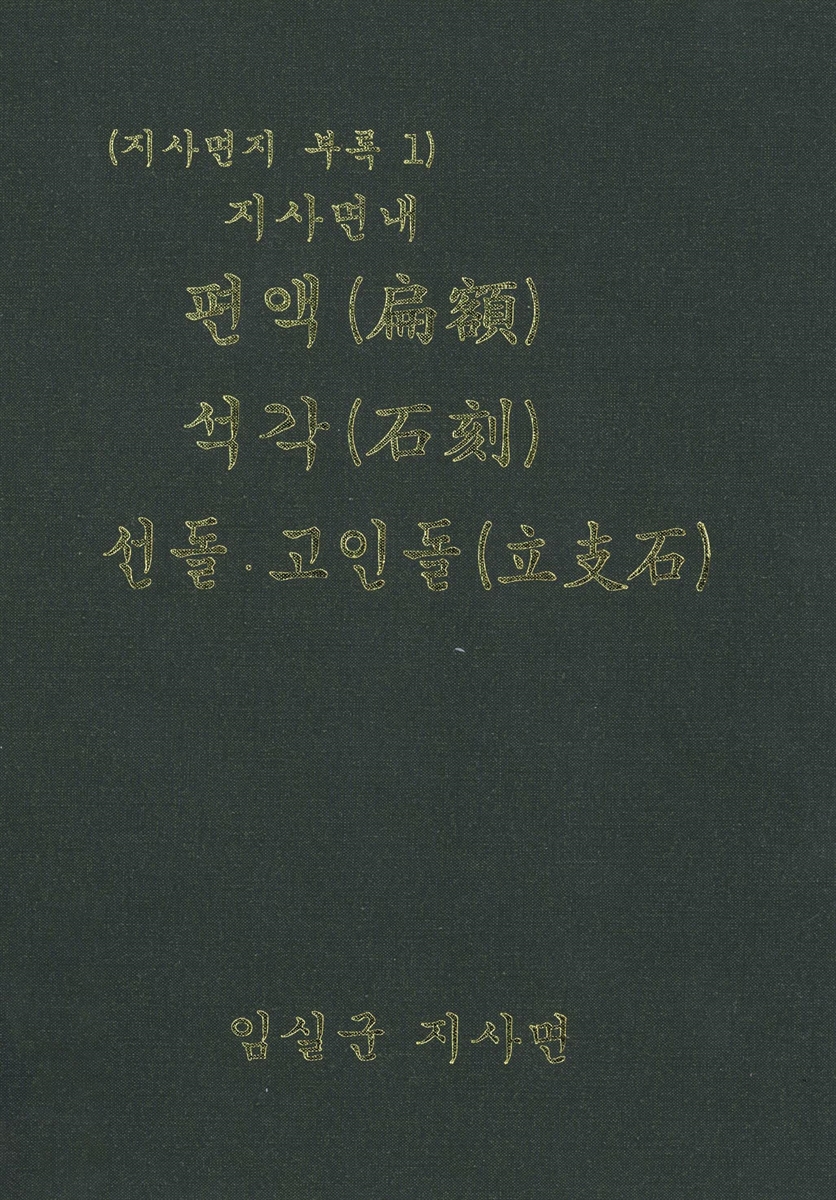 (지사면지 부록 1)
지사면내
편액(扁額)
석각(石刻)
선돌·고인돌(立支石)
임실군 지사면